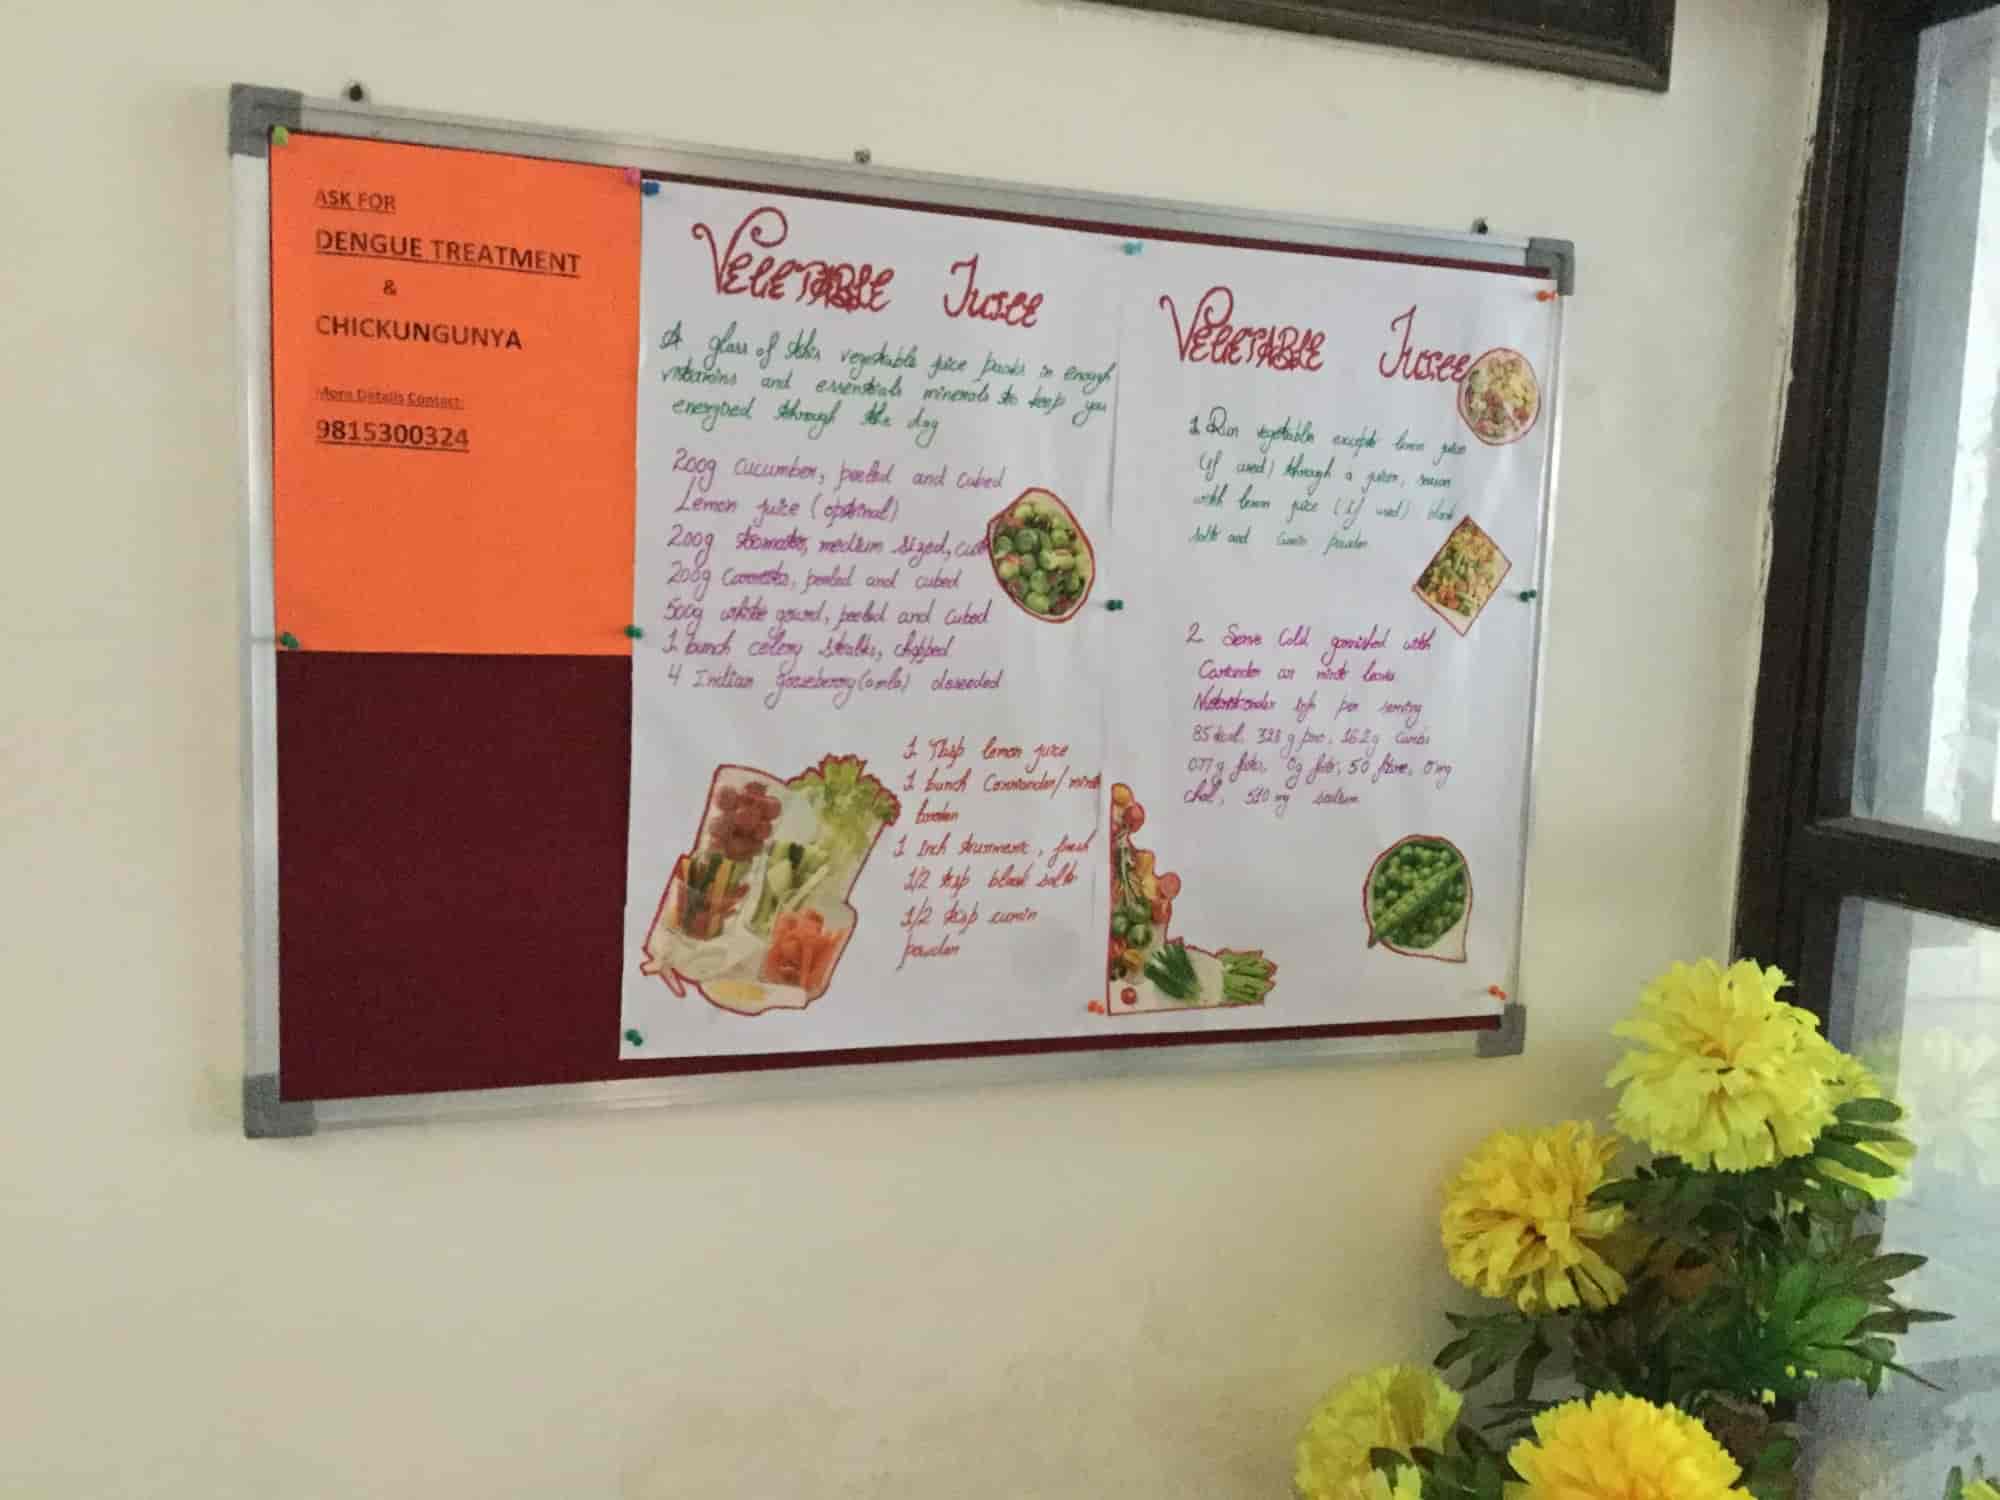 ASK FOR
DENGUE TREATMENT
&
CHICKUNGUNYA
More Details Contact:
9815300324
VEGETABLE JUICE
A glass of this vegetable juice packs in enough
vitamins and essentials minerals to keep you
energised through the day
200g cucumber, peeled and cubed
Lemon juice (optional)
200g tomatos, medium sized, cut
200g Carrots, peeled and cubed
500g white gourd, peeled and cubed
1 bunch celery stalks, chopped
4 Indian gooseberry (amla) deseeded
1 Tbsp lemon juice
1 bunch Coriander/mint
1 Inch turmeric, fresh
1/2 tsp black salt
1/2 tsp cumin
powder
VEGETABLE JUICE
1. Run vegetables except lemon juice
(if used) through a juicer, season
with lemon juice (if used) black
salt and cumin powder
2. Serve Cold garnished with
Coriander or mint leaves
info per serving
85 kcal, 3.28 g pro, 16.2 g carbs
0.77 g fats, 0g 5.0 fibre, 0 mg
chol, 510 mg sodium